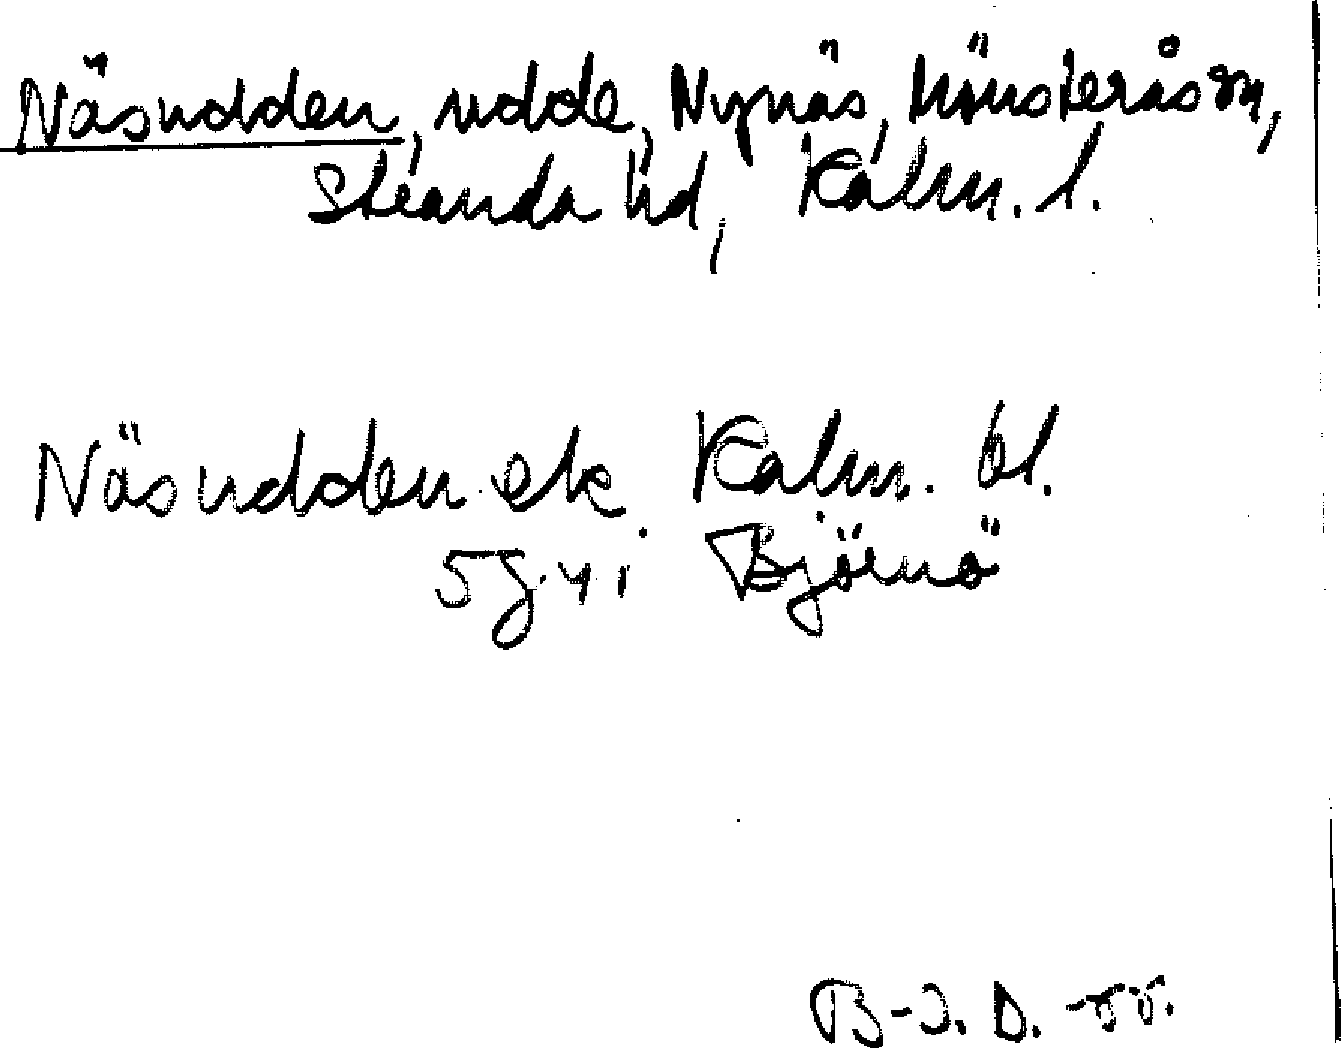 Näsudden, udde, Nynäs, Mönsterås sn,
Stranda hd, Kalm. l.
Näsudden ek. Kalm. bl.
5g. 41 Björnö
B-I. D. -55.